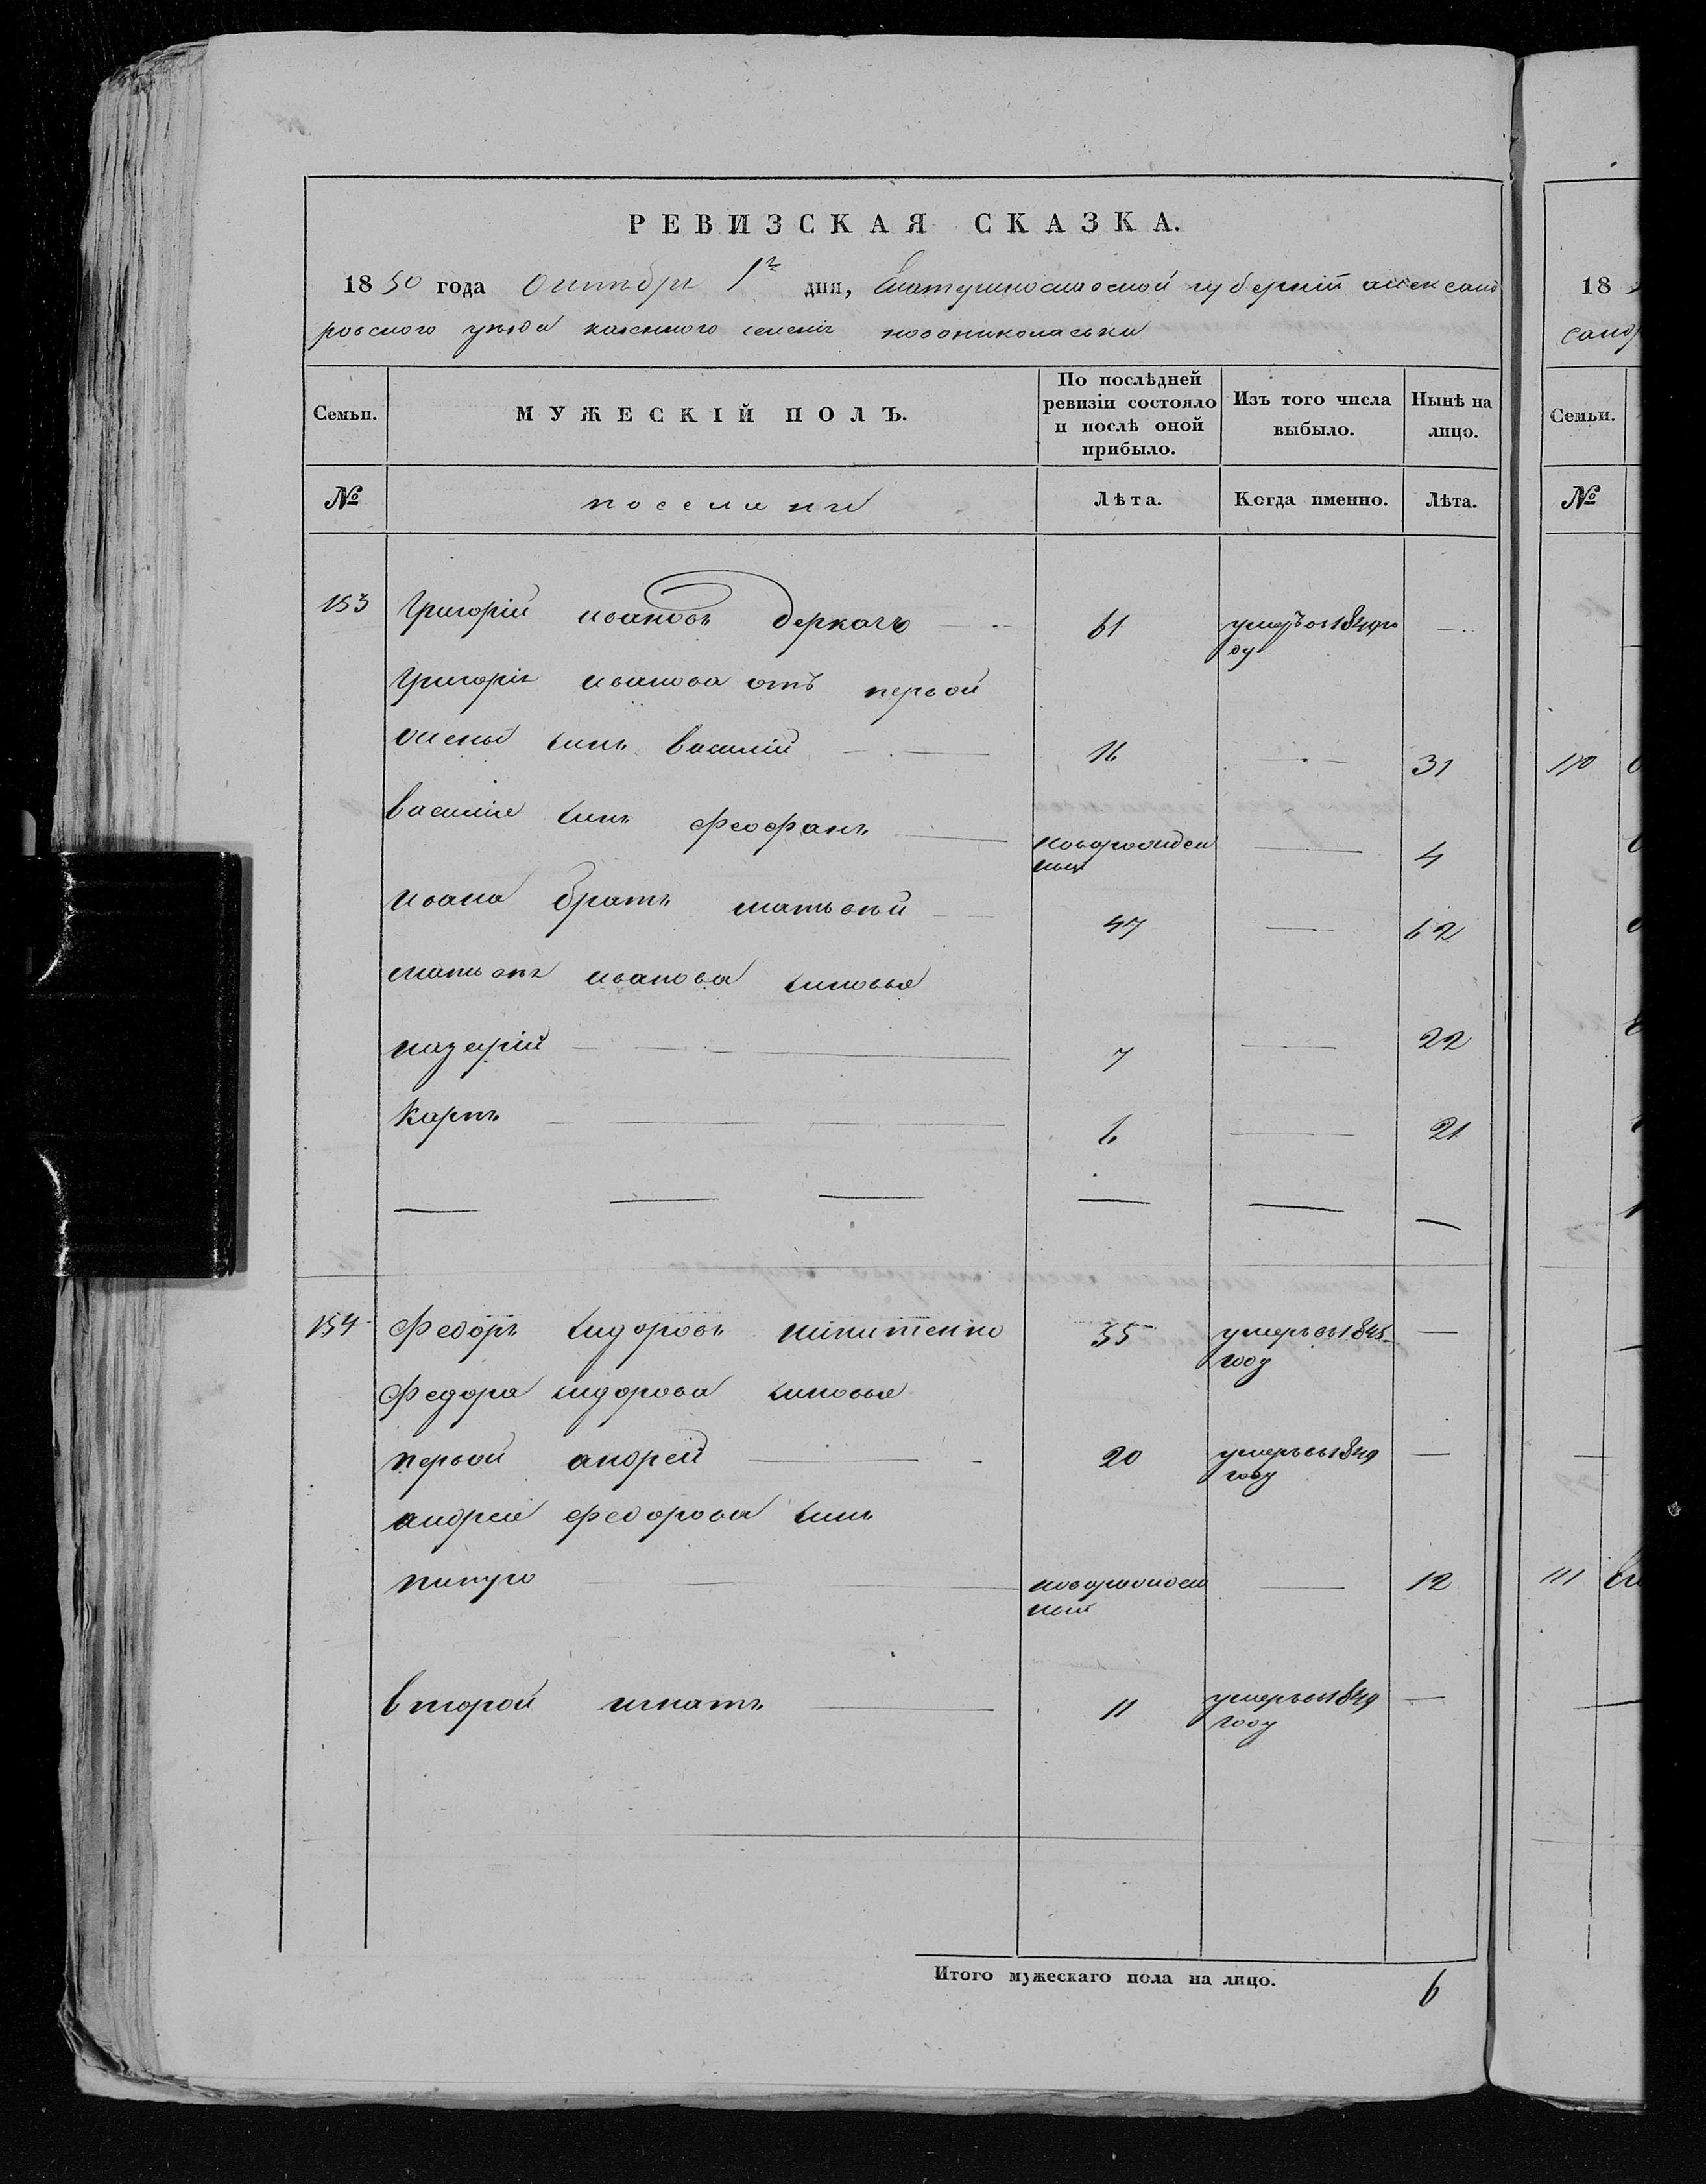 РЕВИЗСКАЯ СКАЗКА.
1850 года Октября 1го дня, Екатеринославской губерніи александ
ровского уезда казенного селенія новониколаевки
Семьи. МУЖЕСКІЙ ПОЛЪ. По послѣдней ревизіи состояло и послѣ оной прибыло. Изъ того числа выбыло. Нынѣ на лицо.
№ поселяне Лѣта. Когда именно. Лѣта.
153 Григорій ивановъ деркачъ 61 умеръ въ 1849 го
ду
Григорія иванова отъ первой
жены сынъ василій 16 31
василія сынъ феофанъ новорожден
ный 4
ивана братъ матвѣй 47 62
матвѣя иванова сыновья
назарій 7 22
карпъ 6 21
154 Федоръ сидоровъ никитенко 55 умеръ въ 1845
году
Федора сидорова сыновья
первой андрей 20 умеръ въ 1849
году
андрея федорова сынъ
новорожден
ный 12
второй игнатъ 11 умеръ въ 1849
году
Итого мужескаго пола на лицо. 6
18
Семьи.
№
110
111